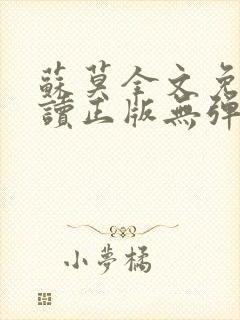 蘇莫全文免
讀正版無彈
小夢橘